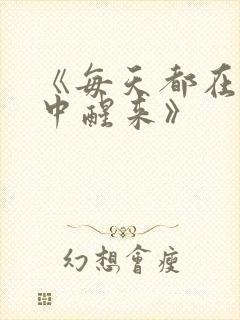 《每天都在
中醒来》
幻想會瘦